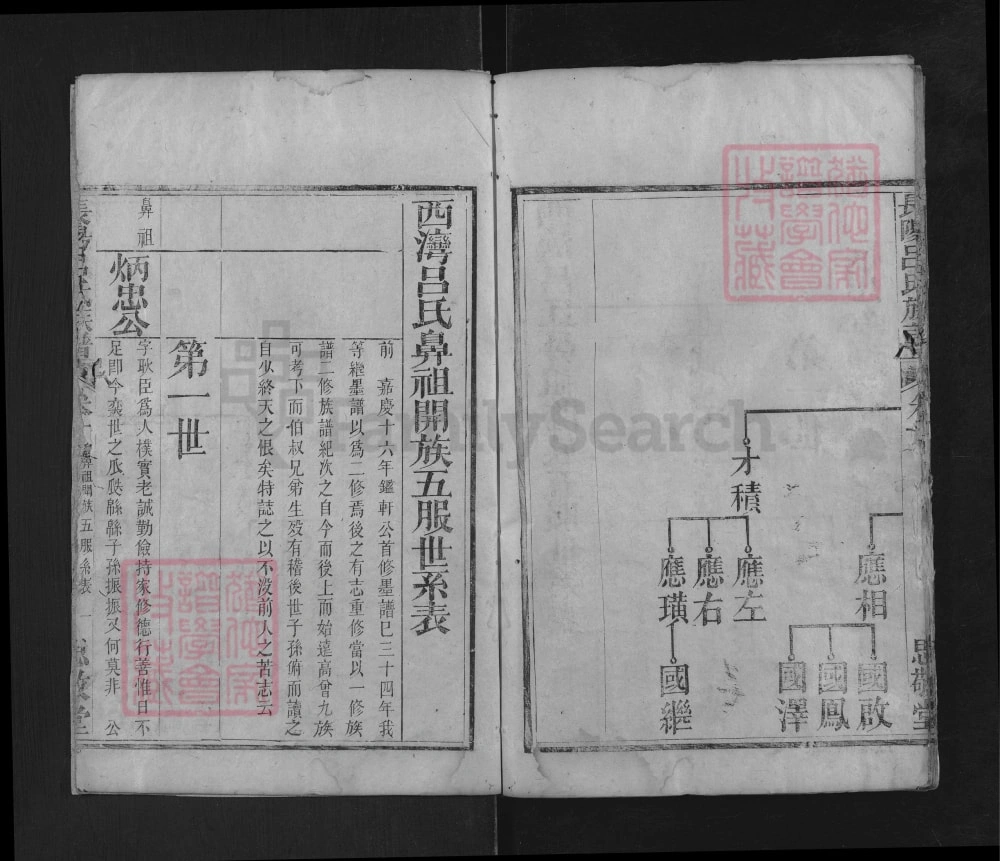 長陽呂氏族譜
忠敬堂
應相
國啟
國鳳
國澤
才積
應左
應右
應璜
國繼
西灣呂氏鼻祖開族五服世系表
前嘉慶十六年鑑軒公首修墨譜巳三十四年我
等繼墨譜以爲二修焉後之有志重修當以一修族
譜二修族譜紀次之自今而後上而始遠高曾九族
可考下而伯叔兄弟生歿有稽後世子孫俯而讀之
自少終天之恨矣特誌之以不没前人之苦志云
第一世
鼻祖
炳忠公
字耿臣爲人樸實老誠勤儉持家修德行善惟日不
足即今奕世之瓜瓞緜緜子孫振振又何莫非 公
鼻祖開族五服系表 一
FamilySearch